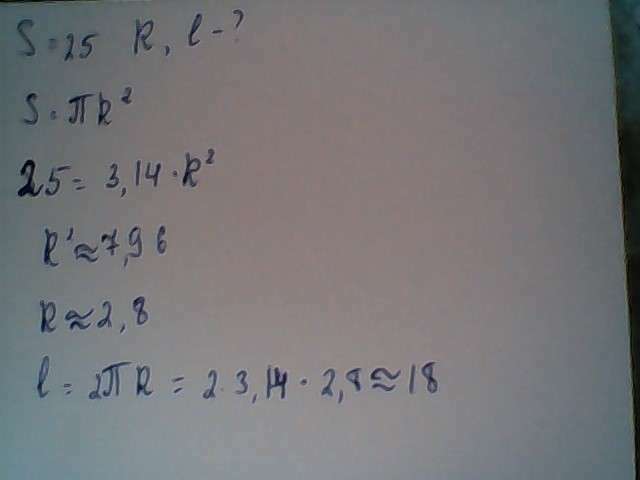 S = 25 R, l - ?
S = πR²
25 = 3,14 · R²
R² ≈ 7,96
R ≈ 2,8
l = 2πR = 2 · 3,14 · 2,8 ≈ 18